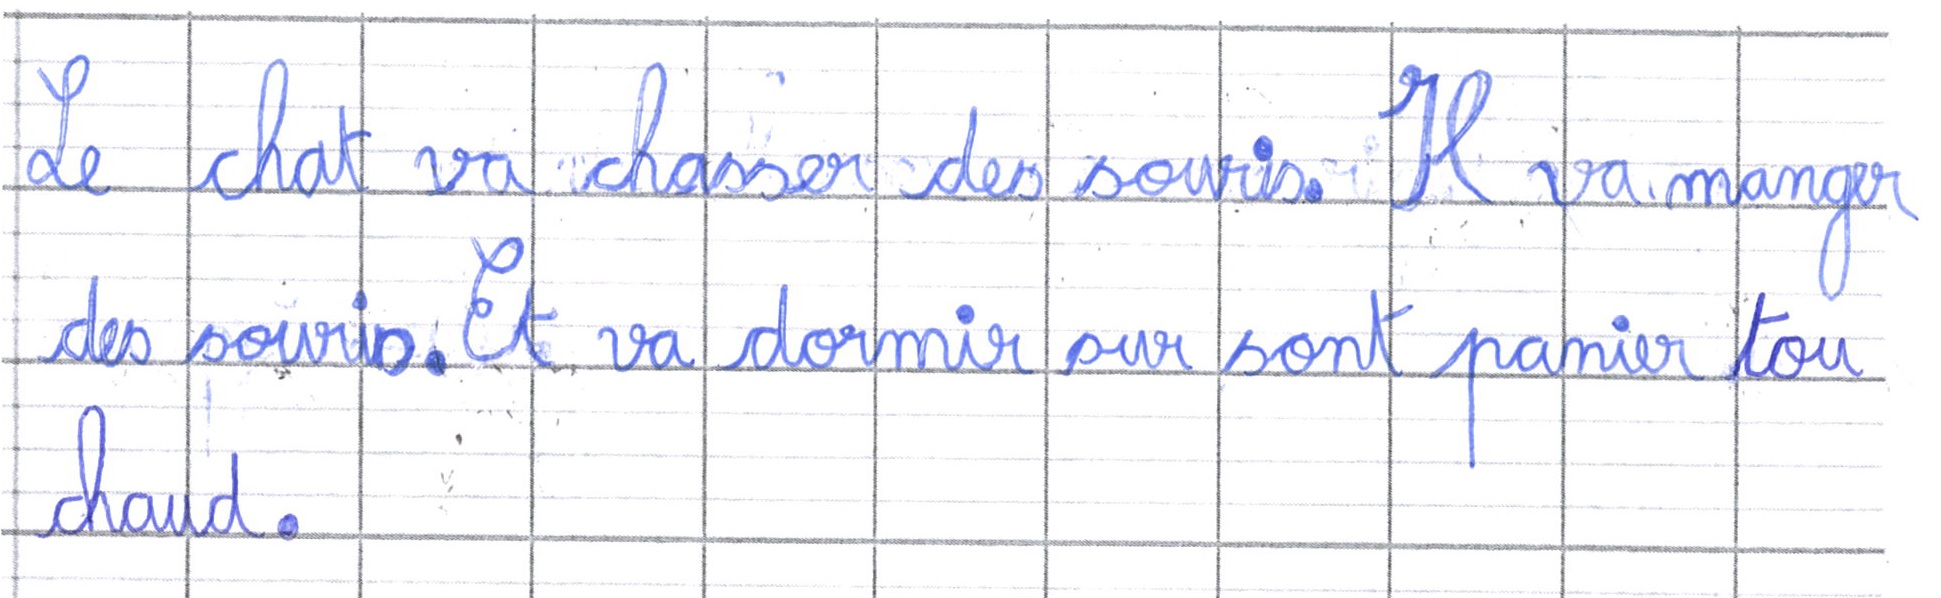 Le chat va chasser des souris. Il va manger
des souris. Et va dormir sur sont panier tou
chaud.